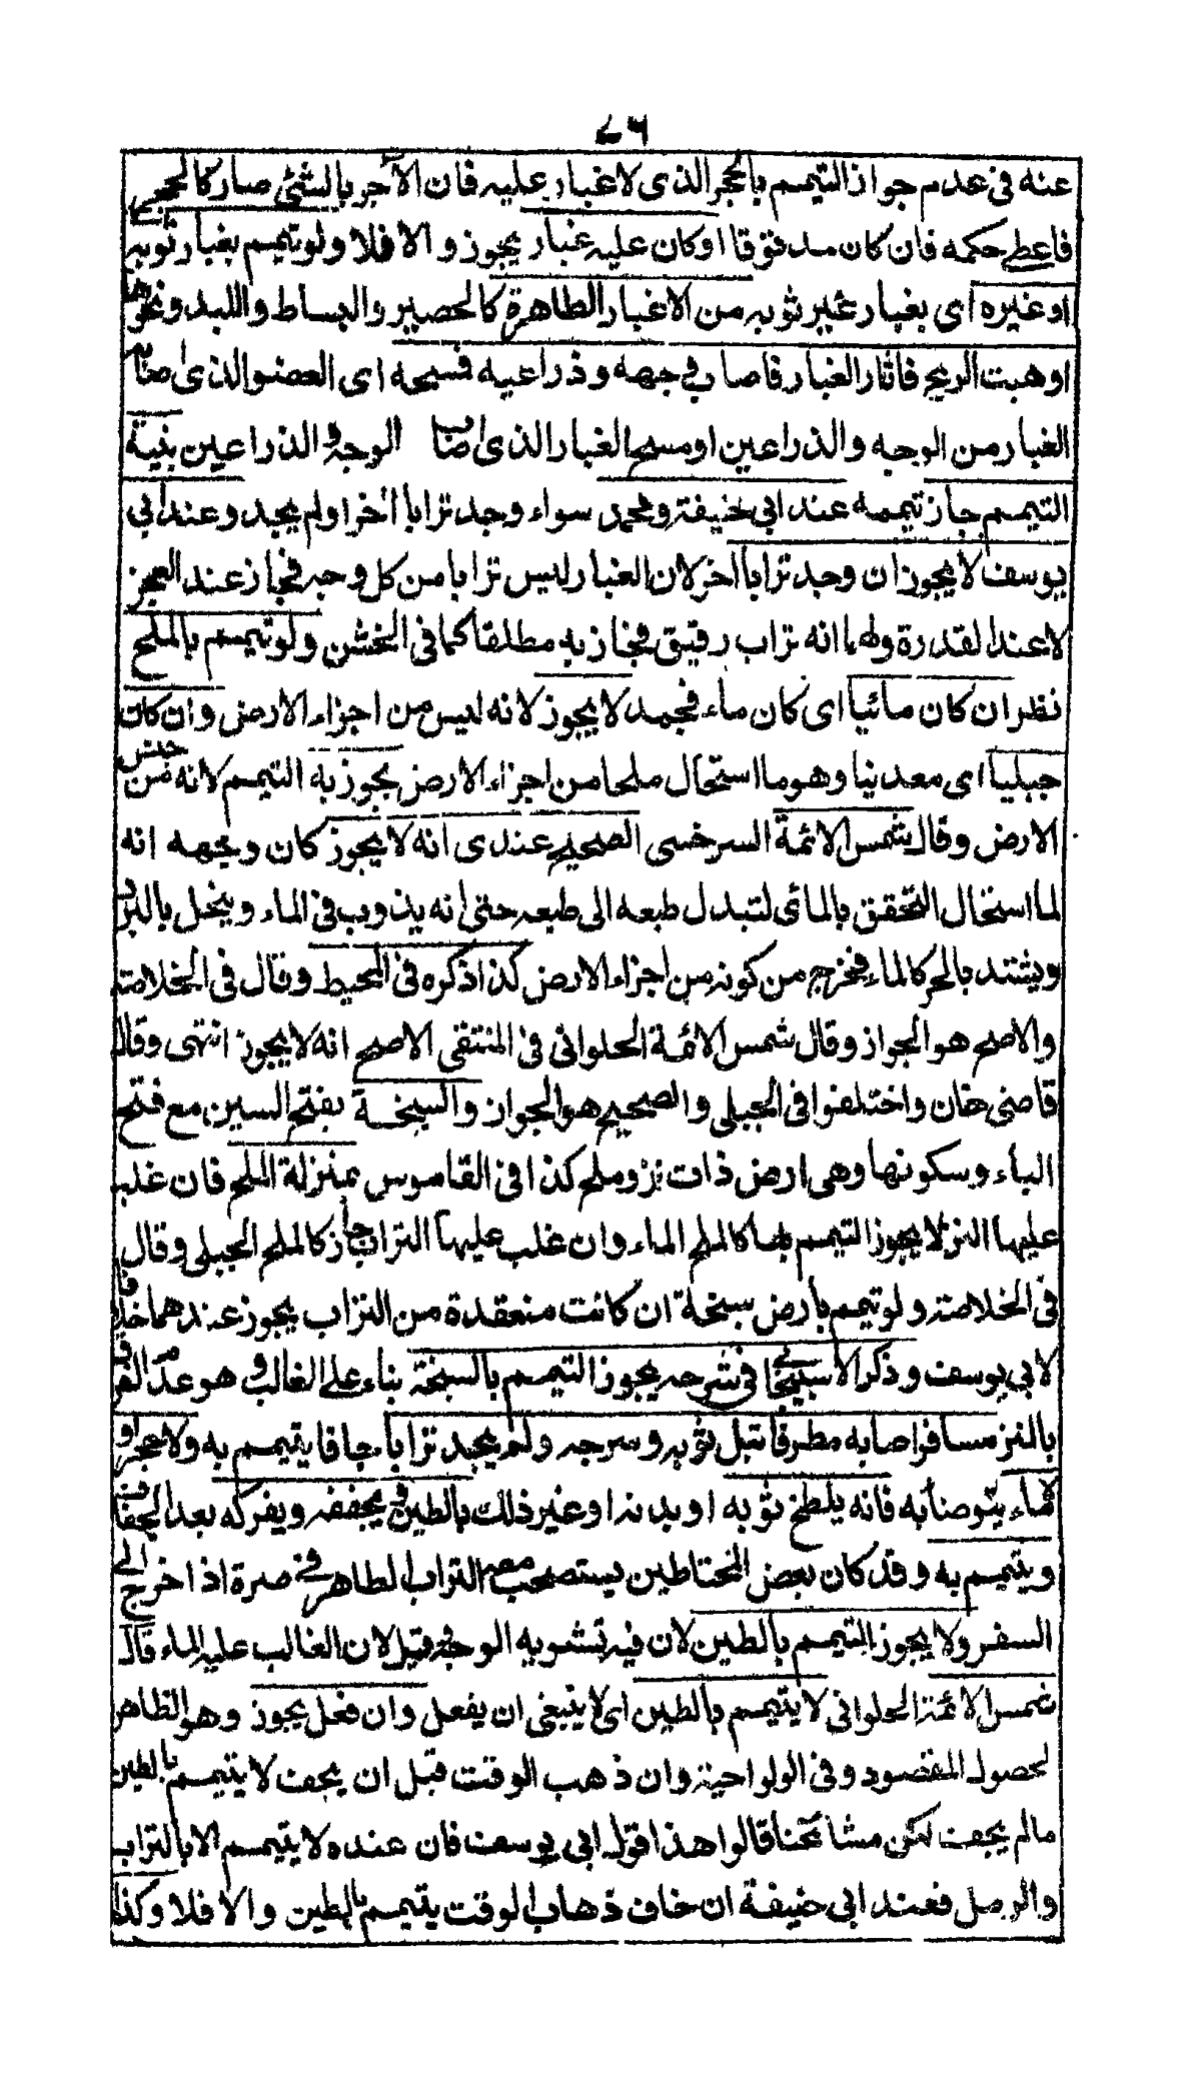 ٧٦
عنه في عدم جواز التيمم بالحجر الذى لا غبار عليه فان الآجر بالشئ صار كالحجر
فاعطى حكمه فان كان مدقوقا او كان عليه غبار يجوز والا فلا ولو تيمم بغبار ثوبه
او غيره اى بغبار غير ثوبه من الاغبار الطاهرة كالحصير والبساط واللبد ونحوها
او هبت الريح فاثار الغبار فاصاب وجهه وذراعيه فمسحه اى العضو الذى اصابه
الغبار من الوجه والذراعين او مسح الغبار الذى اصاب الوجه والذراعين بنية
التيمم جاز تيممه عند ابى حنيفة ومحمد سواء وجد ترابا اخر اولم يجد وعند ابى
يوسف لا يجوز ان وجد ترابا اخر لان الغبار ليس ترابا من كل وجه فجاز عند العجز
لا عند القدرة ولهما انه تراب رقيق فجاز به مطلقا كما فى الخشن ولو تيمم بالملح
نظر ان كان مائيا اى كان ماء فجمد لا يجوز لانه ليس من اجزاء الارض وان كان
جبليا اى معدنيا وهو ما استحال ملحا من اجزاء الارض يجوز به التيمم لانه من جنس
الارض وقال شمس الائمة السرخسى الصحيح عندى انه لا يجوز كان وجهه انه
لما استحال التحقق بالمائى لتبدل طبعه الى طبعه حتى انه يذوب فى الماء وينحل بالبرد
ويشتد بالحر كالماء فخرج من كونه من اجزاء الارض كذا ذكره فى المحيط وقال فى الخلاصة
والاصح هو الجواز وقال شمس الائمة الحلوانى فى المنتقى الاصح انه لا يجوز انتهى وقال
قاضى خان واختلفوا فى الجبلى والصحيح هو الجواز والسبخة بفتح السين مع فتح
الباء وسكونها وهى ارض ذات نز وملح كذا فى القاموس بمنزلة الملح فان غلب
عليها النز لا يجوز التيمم بها كالملح الماء وان غلب عليها التراب جاز كالملح الجبلى وقال
فى الخلاصة ولو تيمم بارض سبخة ان كانت منعقدة من التراب يجوز عندهما خلافا
لابى يوسف وذكر الاسبيجابى فى شرحه يجوز التيمم بالسبخة بناء على الغالب وهو عدم
بالنز مسافر اصابه مطر فابتل ثوبه وسرجه ولم يجد ترابا جافا يتيمم به ولا حجرا و
لا ماء يتوضأ به فانه يلطخ ثوبه او بدنه او غير ذلك بالطين ويجففه ويفركه بعد الجفاف
ويتيمم به وقد كان بعض المحتاطين يستصحب معه التراب الطاهر فى صرة اذا خرج الى
السفر ولا يجوز التيمم بالطين لان فيه تشويه الوجه قيل لان الغالب عليه الماء قال
شمس الائمة الحلوانى لا يتيمم بالطين اى لا ينبغى ان يفعل وان فعل يجوز وهو الظاهر
لحصول المقصود وفى الولواجية وان ذهب الوقت قبل ان يجف لا يتيمم بالطين
مالم يجف لكن مشائخنا قالوا هذا قول ابى يوسف فان عنده لا يتيمم الا بالتراب
والرمل فعند ابى حنيفة ان خاف ذهاب الوقت يتيمم بالطين والا فلا وكذا